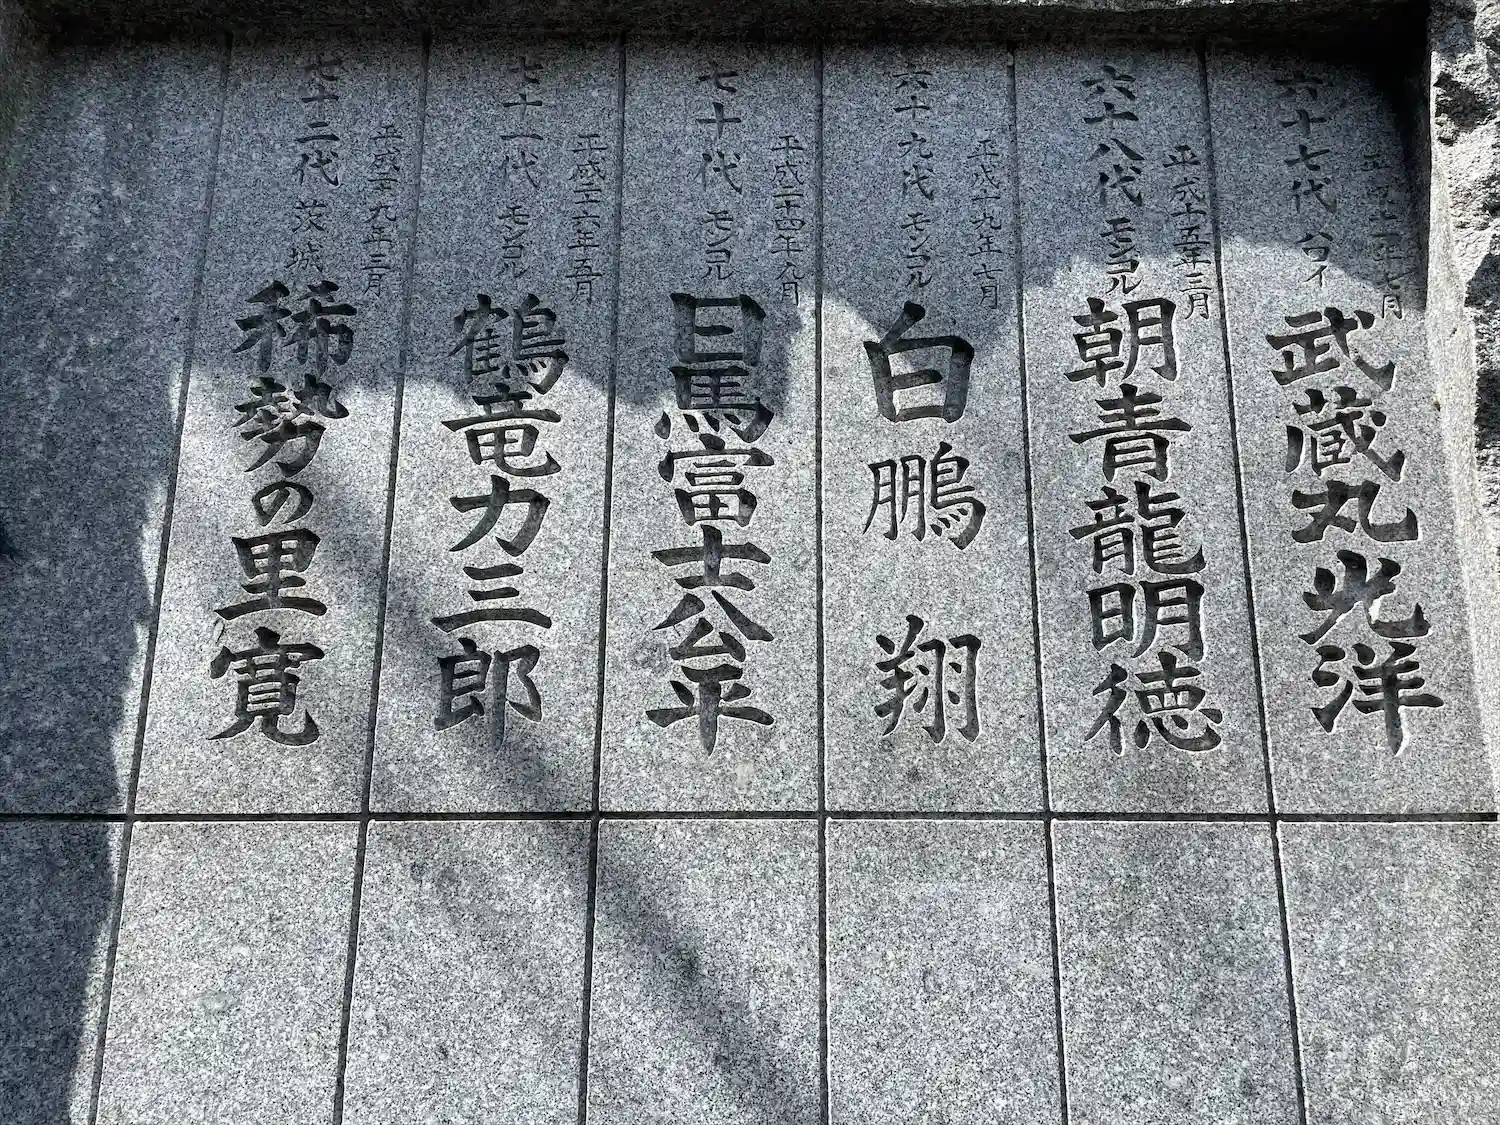 平成十一年七月
六十七代 ハワイ
武蔵丸光洋
平成十五年三月
六十八代 モンゴル
朝青龍明徳
平成十九年七月
六十九代 モンゴル
白鵬翔
平成二十四年九月
七十代 モンゴル
日馬富士公平
平成二十六年五月
七十一代 モンゴル
鶴竜力三郎
平成二十九年三月
七十二代 茨城
稀勢の里寛